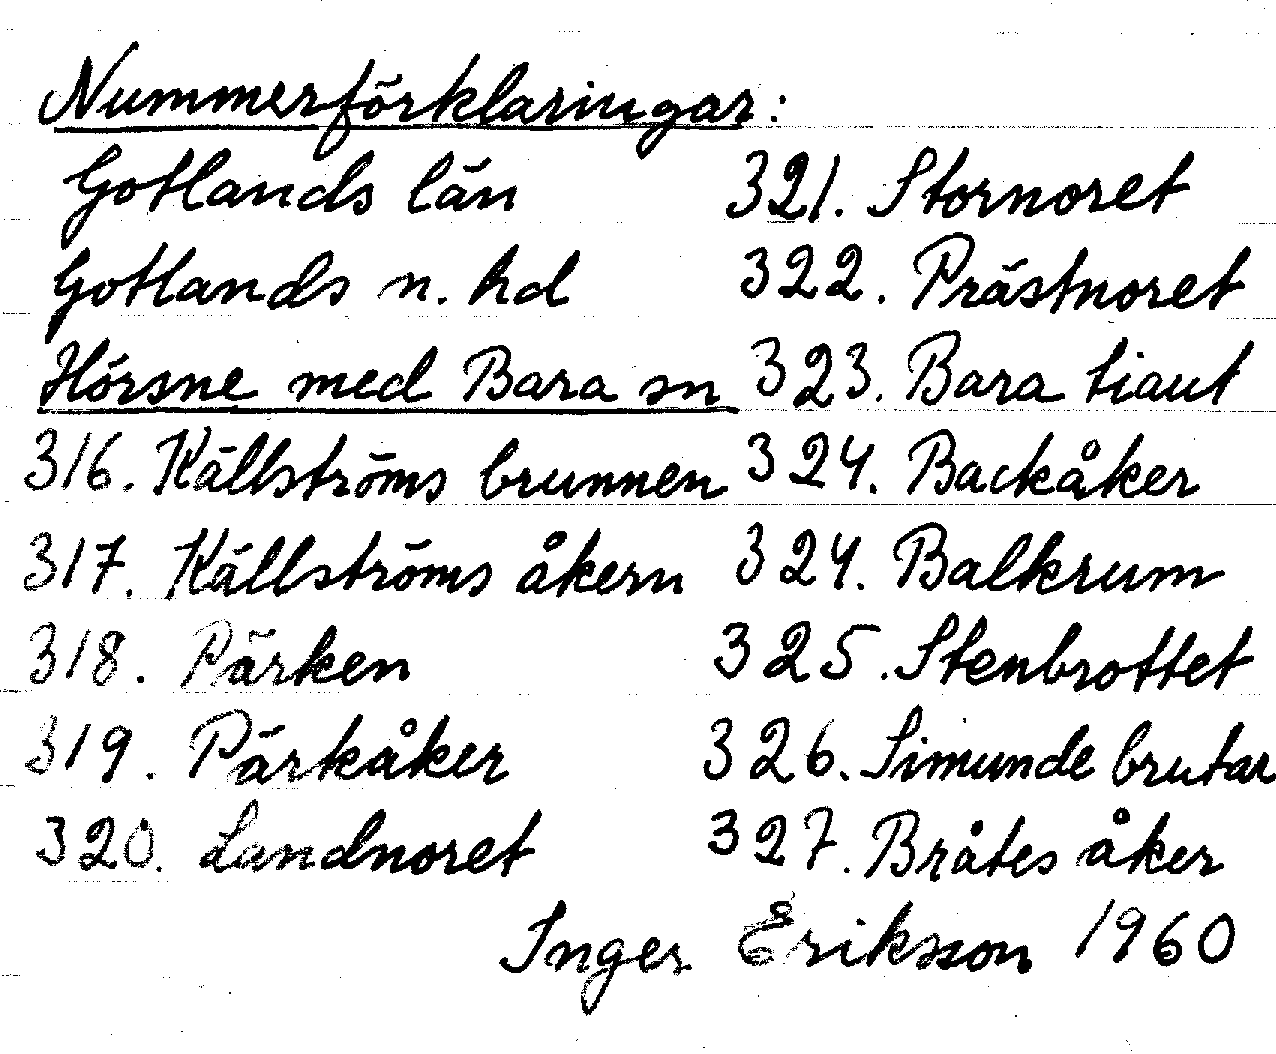 Nummerförklaringar:
Gotlands län
Gotlands n. hd
Hörsne med Bara sn
316. Källströms brunnen
317. Källströms åkern
318. Pärken
319. Pärkåker
320. Landnoret
321. Stornoret
322. Prästnoret
323. Bara tiaut
324. Backåker
324. Balkrum
325. Stenbrottet
326. Simunde brutar
327. Bråtes åker
Inger Eriksson 1960